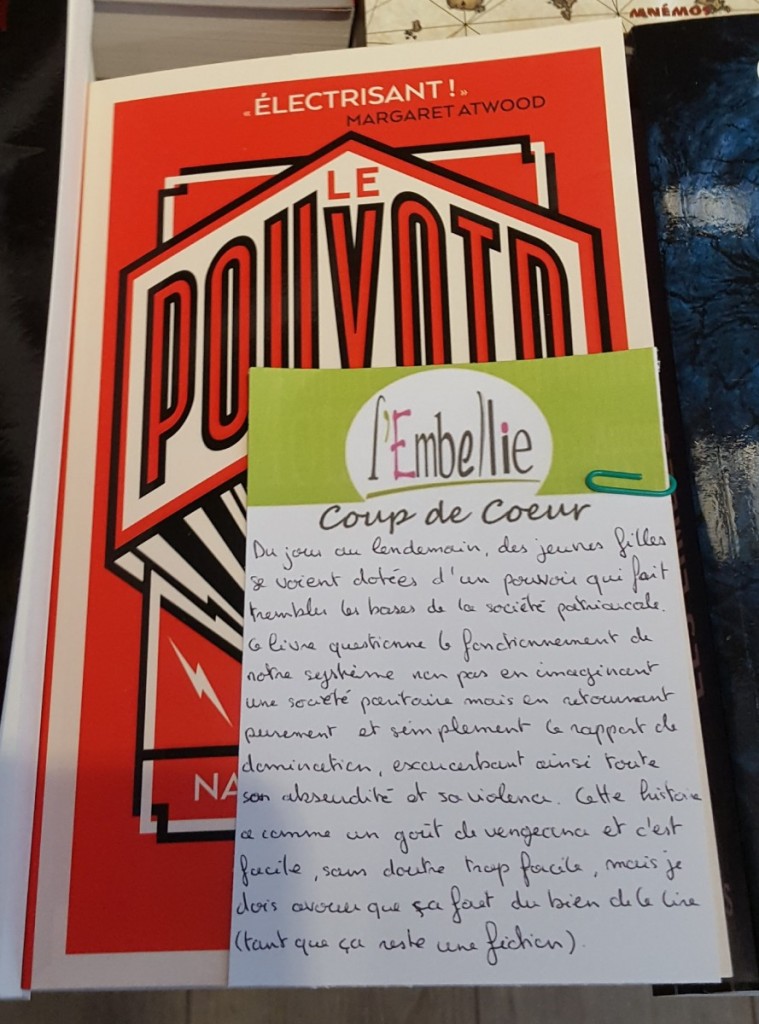 MNÉMOS
« ÉLECTRISANT ! »
MARGARET ATWOOD
LE
POUVOIR
NA
l'Embellie
Coup de Coeur
Du jour au lendemain, des jeunes filles
se voient dotées d'un pouvoir qui fait
trembler les bases de la société patriarcale.
Ce livre questionne le fonctionnement de
notre système non pas en imaginant
une société paritaire mais en retournant
purement et simplement le rapport de
domination, exacerbant ainsi toute
son absurdité et sa violence. Cette histoire
a comme un goût de vengeance et c'est
facile, sans doute trop facile, mais je
dois avouer que ça fait du bien de le lire
(tant que ça reste une fiction).